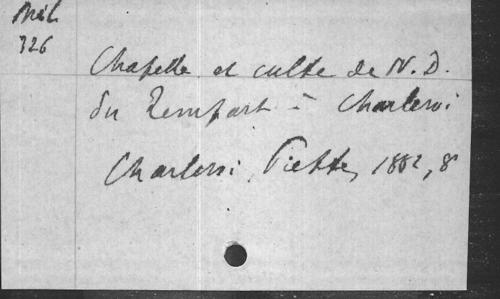 Mél
326
Chapelle et culte de N. D.
du Rempart à Charleroi
Charleroi, Piette, 1882, 8°